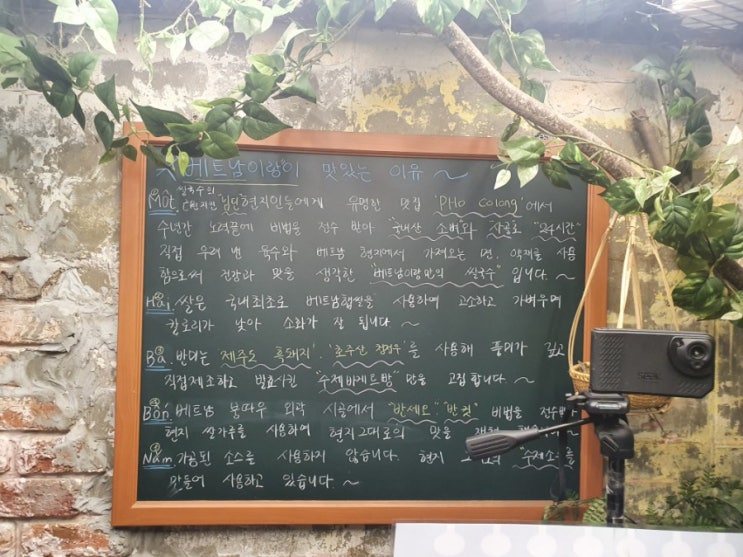 베트남이랑이 맛있는 이유 ~
Một. 쌀국수의 본고장인 남딘 현지인들에게 유명한 맛집 'PHO Colong'에서
수년간 노력끝에 비법을 전수 받아 "국내산 소뼈와 사골로 "24시간~
직접 우려 낸 육수와 베트남 현지에서 가져오는 면, 약재를 사용
함으로써 건강과 맛을 생각한 "베트남이랑만의 쌀국수" 입니다. ~
Hai. 쌀은 국내최초로 베트남햅쌀을 사용하여 고소하고 가벼우며
칼로리가 낮아 소화가 잘 됩니다 ~
Ba. 반미는 '제주도 흑돼지' '호주산 청정우'를 사용해 풍미가 깊고
직접제조하고 발효시킨 "수제바게트빵" 만을 고집합니다. ~
Bốn. 베트남 붕따우 외곽 시골에서 "반쎄오" "반콧" 비법을 전수받
현지 쌀가루를 사용하여 현지그대로의 맛을
Năm. 가공된 소스를 사용하지 않습니다. 현지 "수제소스를
만들어 사용하고 있습니다. ~